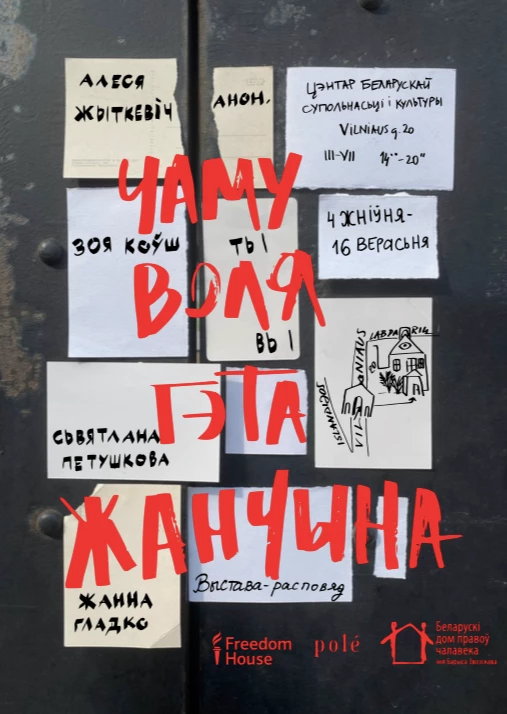 АЛЕСЯ
ЖЫТКЕВІЧ
АНОН.
ЦЭНТАР БЕЛАРУСКАЙ
СУПОЛЬНАСЬЦІ І КУЛЬТУРЫ
VILNIAUS g. 20
III-VII 14⁰⁰-20⁰⁰
ЧАМУ
4 ЖНІЎНЯ-
16 ВЕРАСЬНЯ
ЗОЯ КОЎШ
ТЫ
ВОЛЯ
ВЫ
ISLANDIJOS
VILNIAUS
LABDARIŲ
ГЭТА
СЬВЯТЛАНА
ПЕТУШКОВА
ЖАНЧЫНА
Выстава-расповяд
ЖАННА
ГЛАДКО
Freedom
House
polé
Беларускі
дом правоў
чалавека
імя Барыса Звозскава